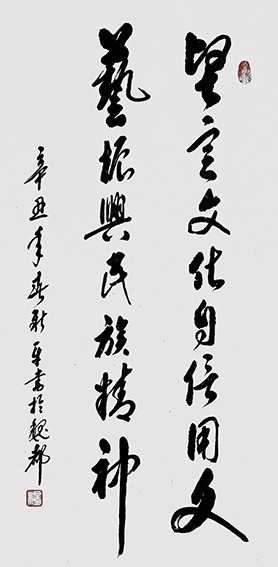 堅定文化自信用文
藝振興民族精神
辛丑年春新平書於魏都